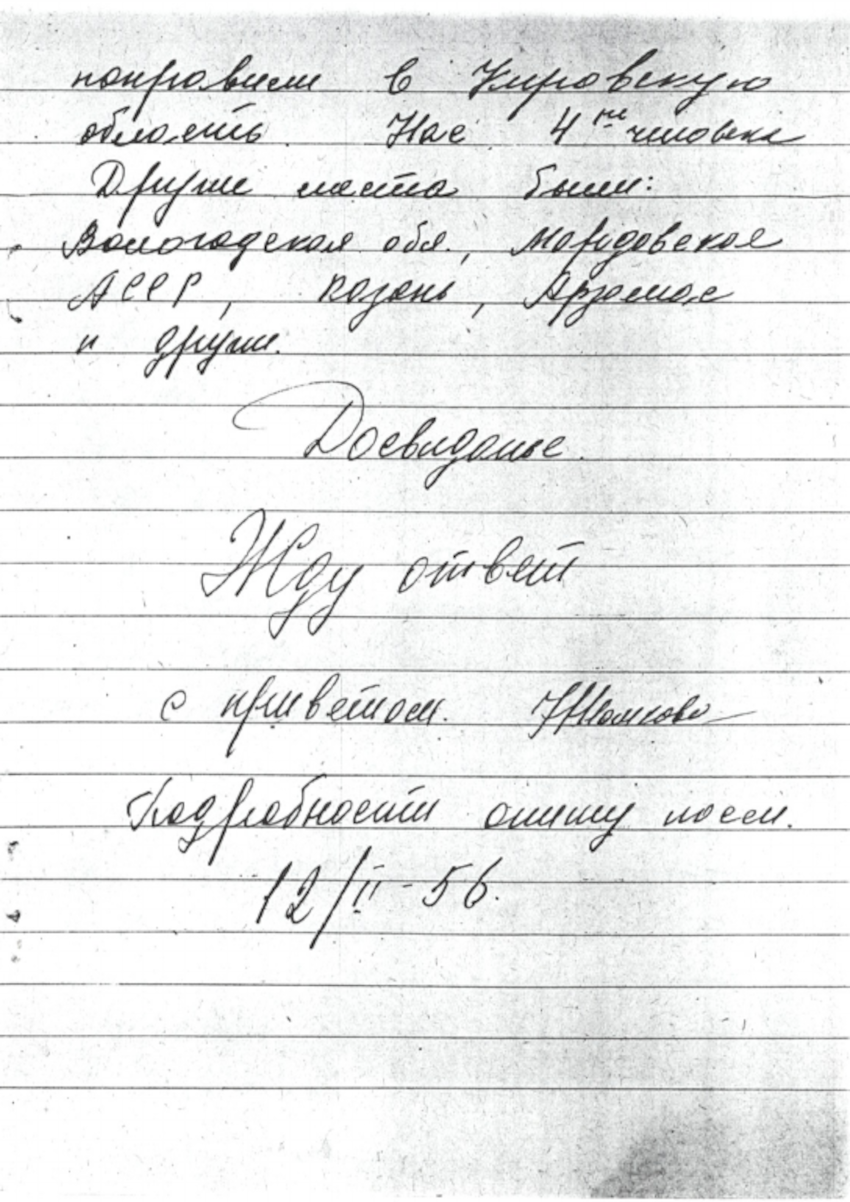 направили в Кировскую
область. Нас 4ре человека
Другие места были:
Вологодская обл., Мордовское
АССР, Казань, Арзамас
и други.
Досвиданье.
Жду ответ
с приветом.
Подробности опишу посл.
12/II-56.